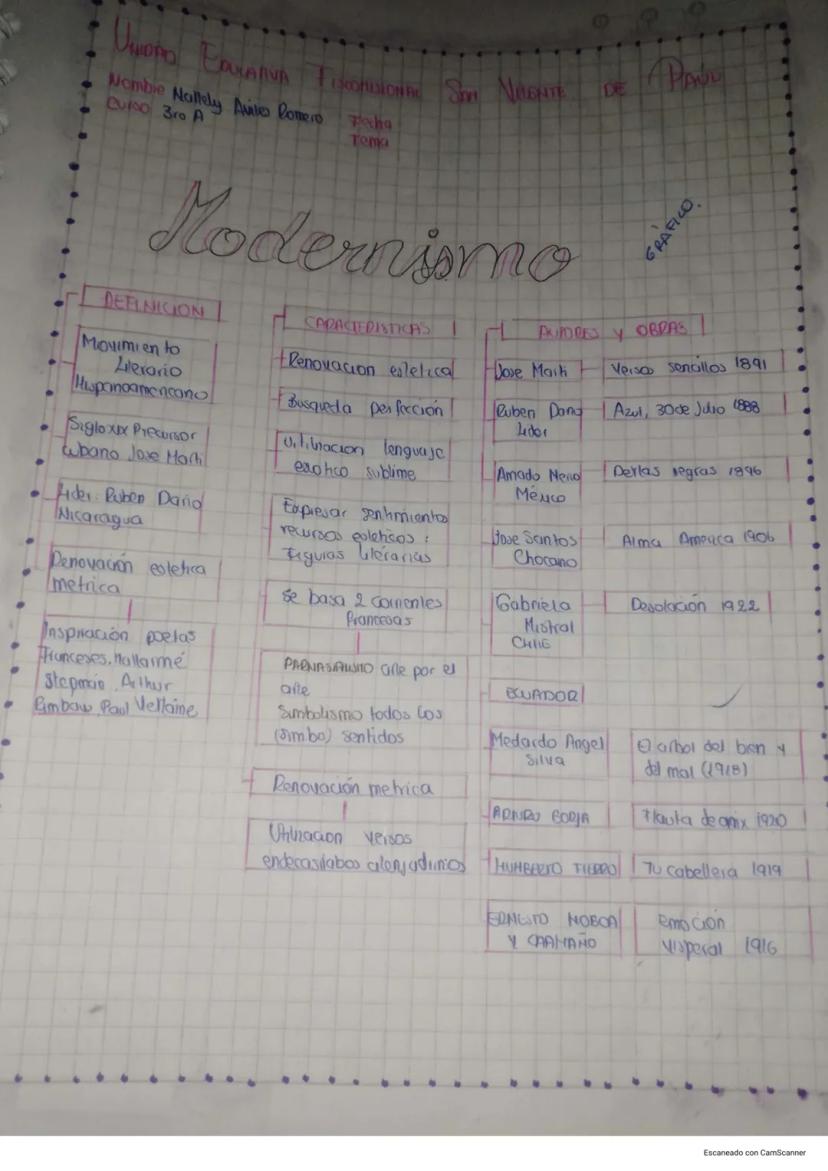 Unidad Educativa Fiscomisional San Vicente de Paúl
Nombre Nallely Aviles Romero
Curso 3ro A
Fecha
Tema
Modernismo
GRÁFICO.
DEFINICION
Movimiento
Literario
Hispanoamericano
Siglo XIX Precursor
cubano Jose Marti
Lider: Ruben Dario
Nicaragua
Renovación estetica
metrica
Inspiración poetas
Franceses. Mallarmé
Arthur
Paul Verlaine
CARACTERISTICAS
Renovacion estetica
Busqueda perfección
Utilinacion lenguaje
exotico sublime
Expresar sentimientos
recursos esteticos:
Figuras literarias
Se basa 2 corrientes
francesas
arte por el
arte
Simbolismo todos los
(simbo) sentidos
Renovación metrica
Utilinacion versos
endecasilabos
AUTORES Y OBRAS
Jose Marti
Versos sencillos 1891
Ruben Dario
Lider
Azul, 30 de Julio 1888
Amado Nervo
México
Perlas negras 1896
Jose Santos
Chocano
Alma America 1906
Gabriela
Mistral
CHILE
Desolación 1922
ECUADOR
Medardo Angel
Silva
El arbol del bien y
del mal (1918)
ARTURO BORJA
Flauta de onix 1920
HUMBERTO FIERRO
Tu cabellera 1919
ERNESTO NOBOA
Y CAAMAÑO
Emoción
Visperal 1916
Escaneado con CamScanner